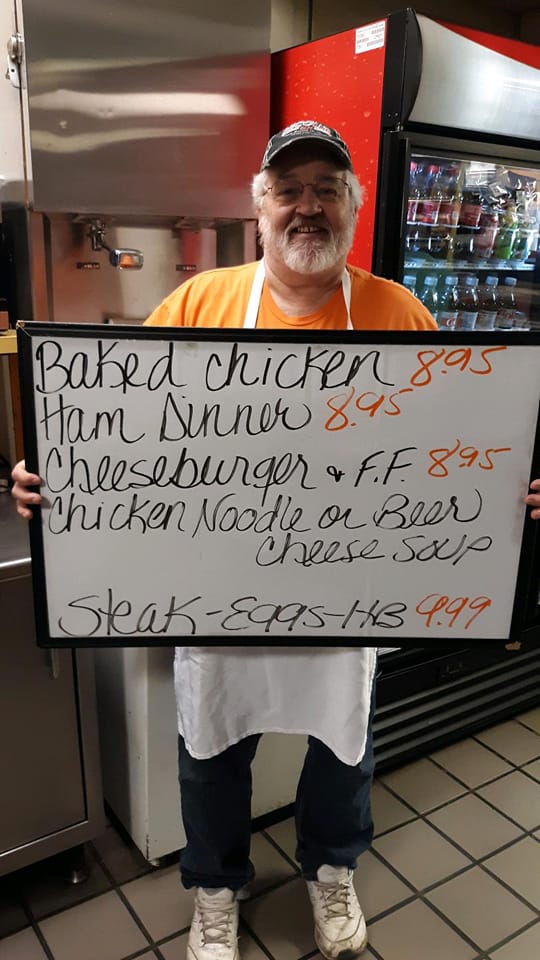 Baked chicken 8.95
Ham Dinner 8.95
Cheeseburger & F.F. 8.95
Chicken Noodle or Beer
Cheese Soup
Steak-Eggs-HB 9.99